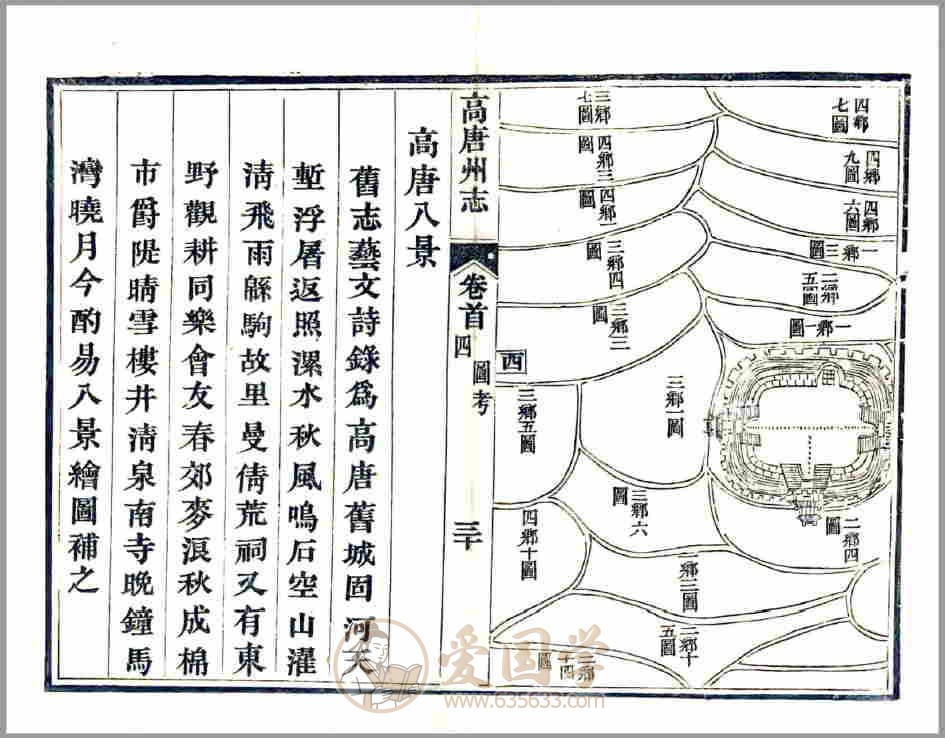 四鄉七圖
四鄉九圖
四鄉六圖
一鄉三圖
二鄉五圖
一鄉一圖
二鄉四圖
三鄉七圖
四鄉三圖
四鄉一圖
三鄉四圖
三鄉二圖
三鄉一圖
三鄉六圖
西
三鄉五圖
四鄉十圖
高唐州志
卷首
四
圖考
三十
高唐八景
舊志藝文詩錄爲高唐舊城固河天
塹浮屠返照漯水秋風鳴石空山灌
清飛雨緜駒故里曼倩荒祠又有東
野觀耕同樂會友春郊麥浪秋成棉
市爵隄晴雪樓井清泉南寺晚鐘馬
灣曉月今酌易八景繪圖補之
爱国学
www.635633.com